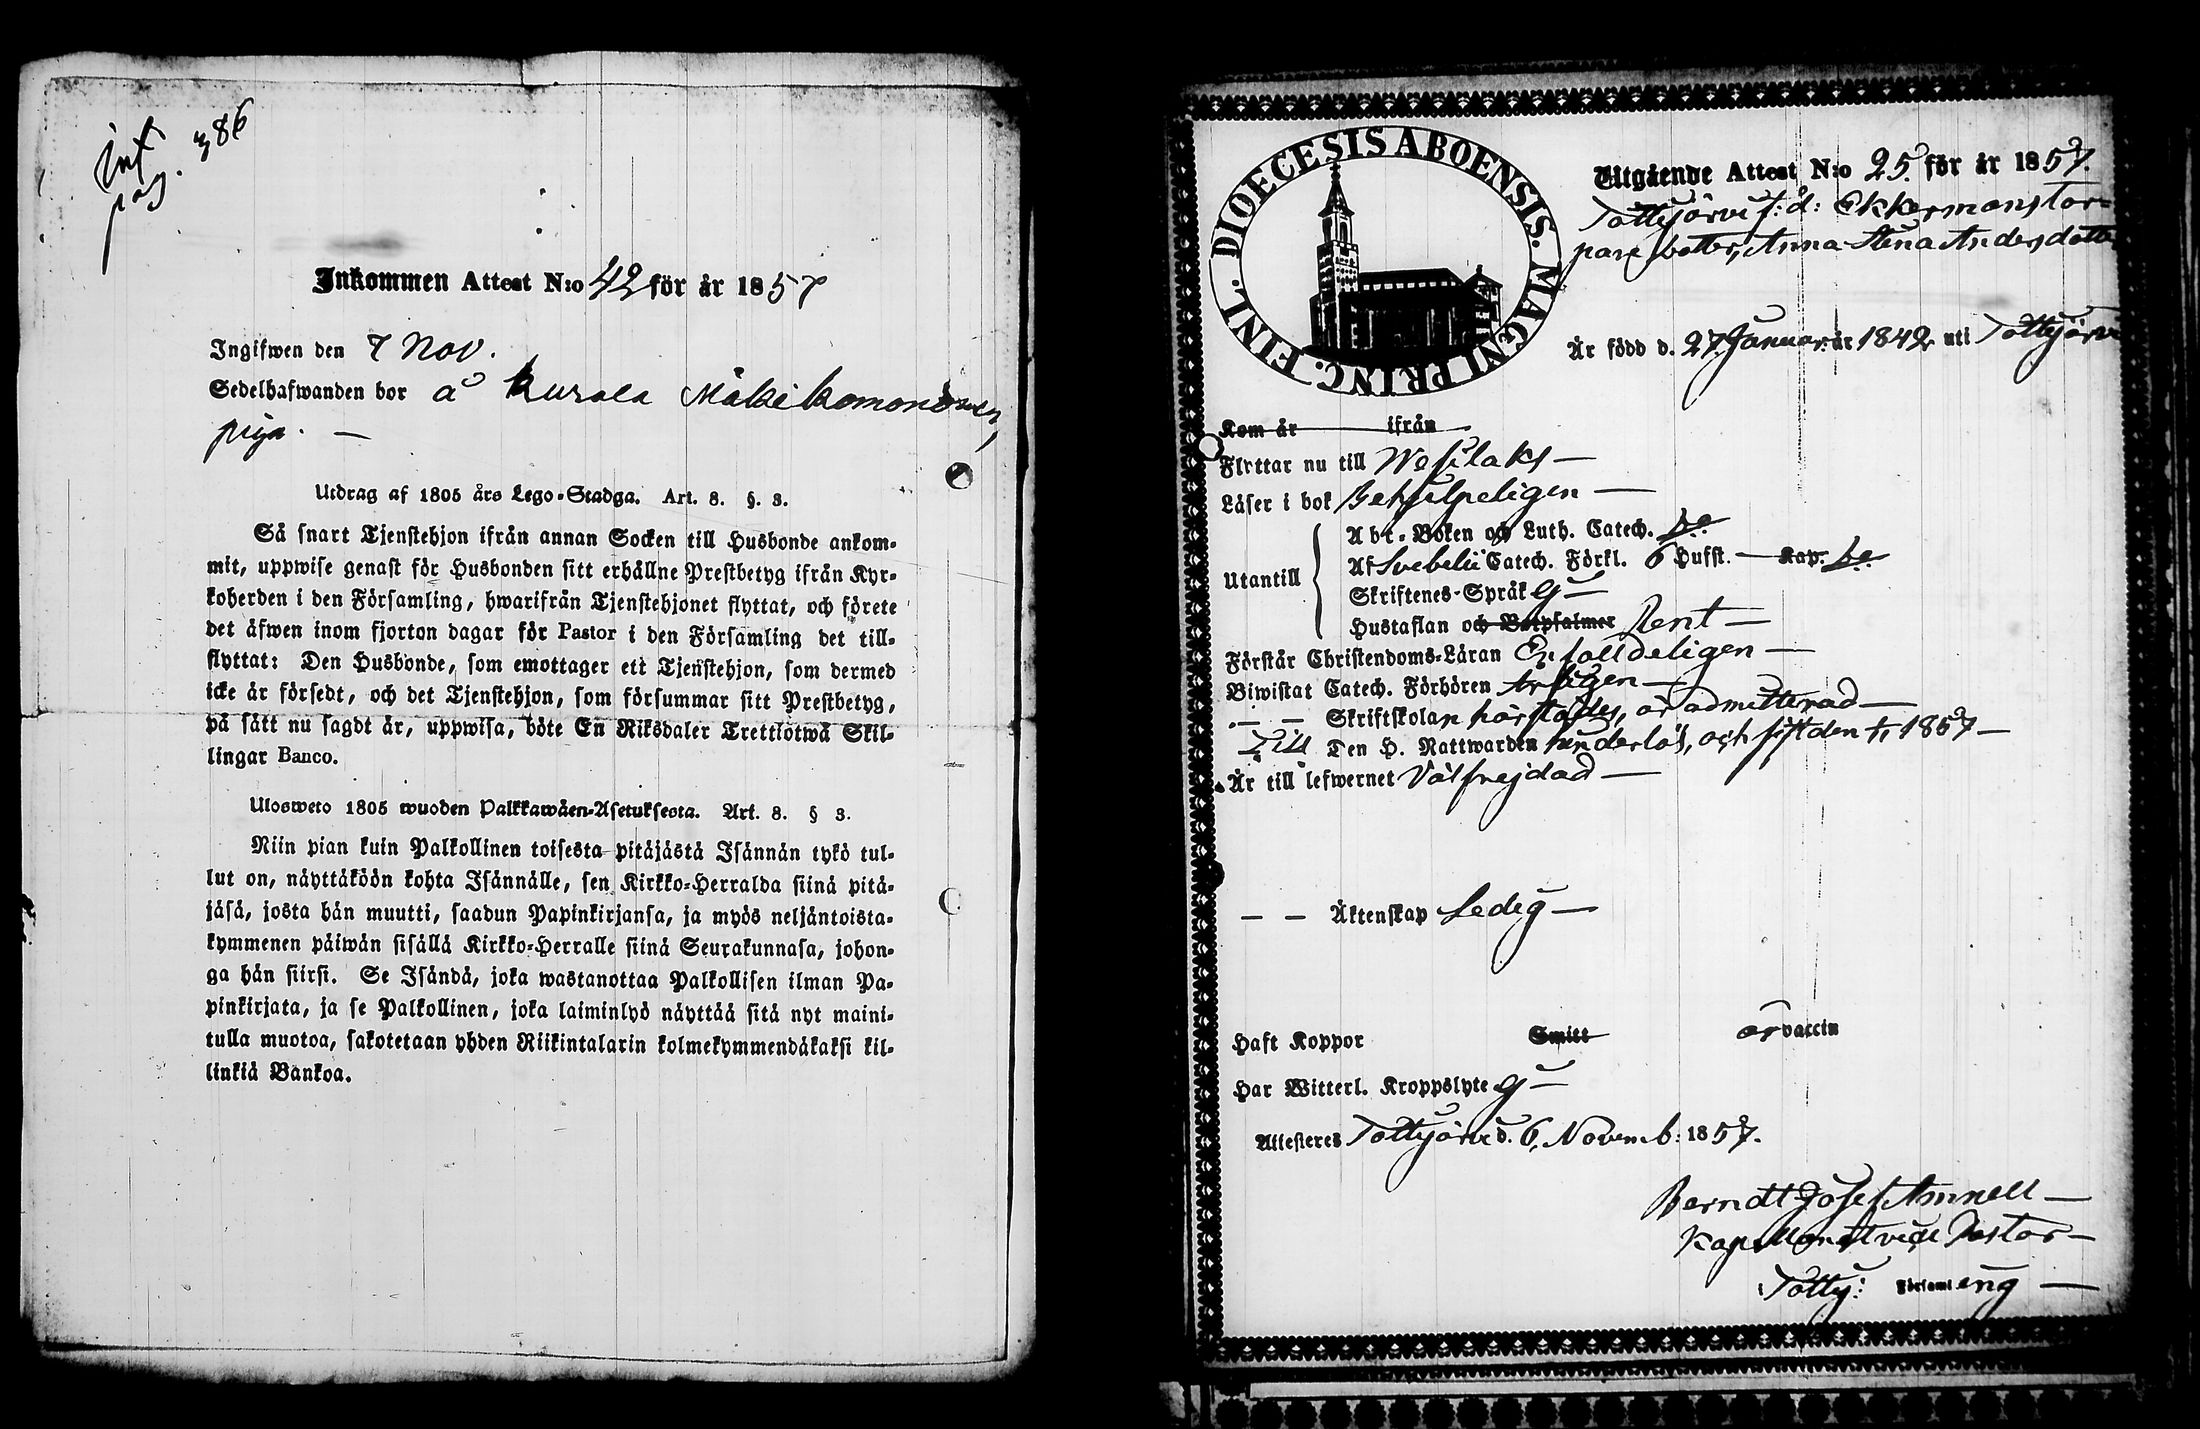 int
pag. 386
Inkommen Attest N:o 42 för år 1857
Ingifwen den 7 Nov.
Sedelhafwanden bor å Kurala Mäki
piga. —
Utdrag af 1805 års Lego-Stadga. Art. 8. §. 3.
Så snart Tjenstehjon ifrån annan Socken till Husbonde ankom-
mit, uppwise genast för Husbonden sitt erhållne Prestbetyg ifrån Kyr-
koherden i den Församling, hwarifrån Tjenstehjonet flyttat, och förete
det äfwen inom fjorton dagar för Pastor i den Församling det till-
flyttat: Den Husbonde, som emottager ett Tjenstehjon, som dermed
icke är försedt, och det Tjenstehjon, som försummar sitt Prestbetyg,
på sätt nu sagdt är, uppwisa, böte En Riksdaler Trettiotwå Skil-
lingar Banco.
Ulosweto 1805 wuoden Palkkawäen-Asetuksesta. Art. 8. § 3.
Niin pian kuin Palkollinen toisesta pitäjästä Isännän tykö tul-
lut on, näyttäköön kohta Isännälle, sen Kirkko-Herralda siinä pitä-
jäsä, josta hän muutti, saadun Papinkirjansa, ja myös neljäntoista-
kymmenen päiwän sisällä Kirkko-Herralle siinä Seurakunnasa, johon-
ga hän siirsi. Se Isändä, joka wastanottaa Palkollisen ilman Pa-
pinkirjata, ja se Palkollinen, joka laiminlyö näyttää sitä nyt maini-
tulla muotoa, sakotetaan yhden Riikintalarin kolmekymmendäkaksi kil-
linkiä Bankoa.
DIOECESIS ABOENSIS. MAGNI PRINC. FINL.
Utgående Attest N:o 25. för år 1857.
Tottijärvi f: d: Ekkermans Tor-
pare dotter, Anna Stina Andersdotter
Är född d. 27 Januar. år 1842 uti Tottijärvi
Kom år ifrån
Flyttar nu till Wesilaks —
Läser i bok Behjelpeligen —
Utantill
Abc-Boken och Luth. Catech. be.
Af Svebelii Catech. Förkl. 6 Hufst. — Kap. be.
Skriftenes-Språk ej —
Hustaflan och Botpsalmer Rent —
Förstår Christendoms-Läran Enfalldeligen —
Biwistat Catech. Förhören Årligen —
— — Skriftskolan härstädes, är admitterad —
Till Den H. Nattwarden hinderlös, och sist den 1/11 1857 —
Är till lefwernet Välfrejdad —
— — Äktenskap Ledig —
Haft Koppor Smitt är vaccin
Har Witterl. Kroppslyte ej —
Attesteres Tottijärvi d. 6, Novemb: 1857.
Berndt Josef Amnell —
Kapellan et vice Pastor —
Totty: Församl. ing —